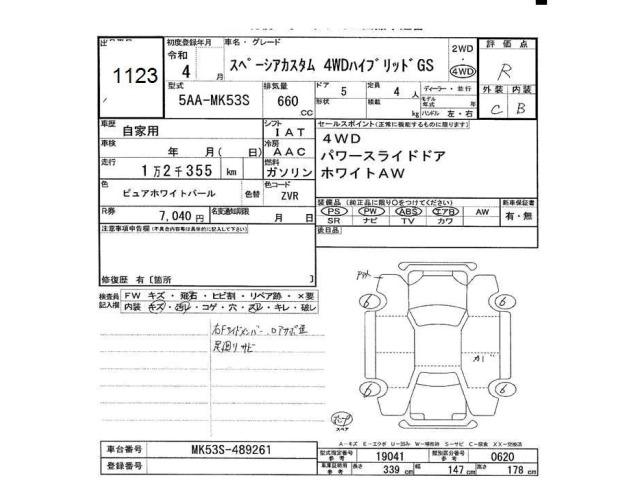 出品番号 1123
初度登録年月 令和 4 月
車名・グレード
スペーシアカスタム 4WDハイブリッドGS
2WD ・ 4WD
評価点 R
外装 内装
C B
型式 5AA-MK53S
排気量 660 CC
ドア 5 定員 4 人
形状 積載 kg
ディーラー・並行
モデル年式 年
ハンドル 左・右
車歴 自家用
シフト IAT
車検 年 月( 日)
冷房 AAC
走行 1万2千355 km
燃料 ガソリン
色 ピュアホワイトパール 色替
色コード ZVR
R券 7,040 円
名変通知期限 月 日
セールスポイント(正常に機能するものに限ります)
4WD
パワースライドドア
ホワイトAW
装備品(㈱正品に限り○をつけてください)
PS PW ABS エアB AW
SR ナビ TV カワ
新車保証書
有・無
後日品
注意事項申告欄(不具合内容等は具体的に記入して下さい)
修復歴 有〔箇所 〕
検査員記入欄
FW キズ・飛石・ヒビ割・リペア跡・×要
内装 キズ・汚レ・コゲ・穴・ズレ・キレ・破レ
足回りサビ
6 6
6 6
スペア
A-キズ E-エクボ U-凹み W-補修跡 S-サビ C-腐食 XX-交換済
車台番号 MK53S-489261
登録番号
型式指定番号 参考 19041
類別区分番号 参考 0620
車庫証明用 参考 長さ 339 cm 幅 147 cm 高さ 178 cm